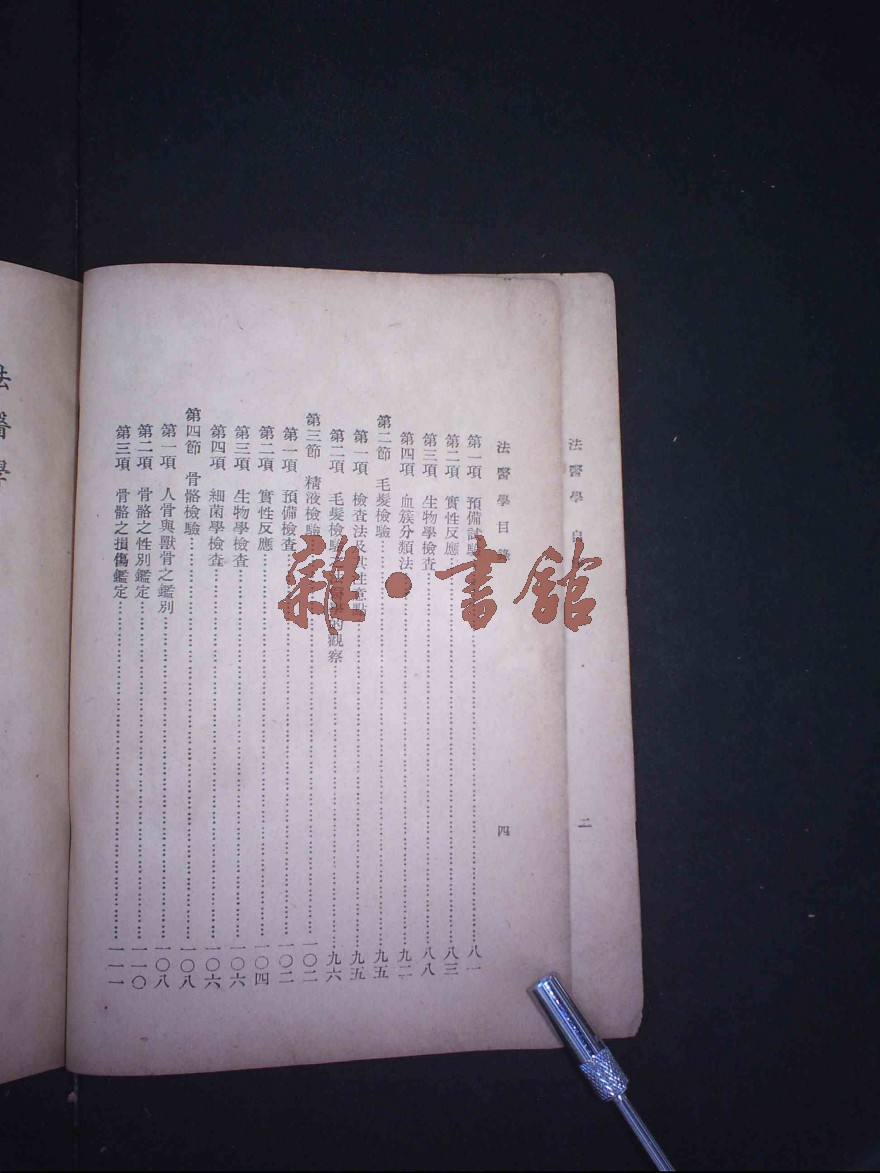 法醫學自
二
法醫學目錄
四
第一項 預備試驗……八一
第二項 實性反應……八三
第三項 生物學檢查……八八
第四項 血簇分類法……九二
第二節 毛髮檢驗……九五
第一項 檢查法及其注意點……九五
第二項 毛髮檢驗 法醫學的觀察……九六
第三節 精液檢驗……一〇二
第一項 預備檢查……一〇二
第二項 實性反應……一〇四
第三項 生物學檢查……一〇六
第四項 細菌學檢查……一〇六
第四節 骨骼檢驗……一〇八
第一項 人骨與獸骨之鑑別……一〇八
第二項 骨骼之性別鑑定……一一〇
第三項 骨骼之損傷鑑定……一一一
法醫學
雜·書館